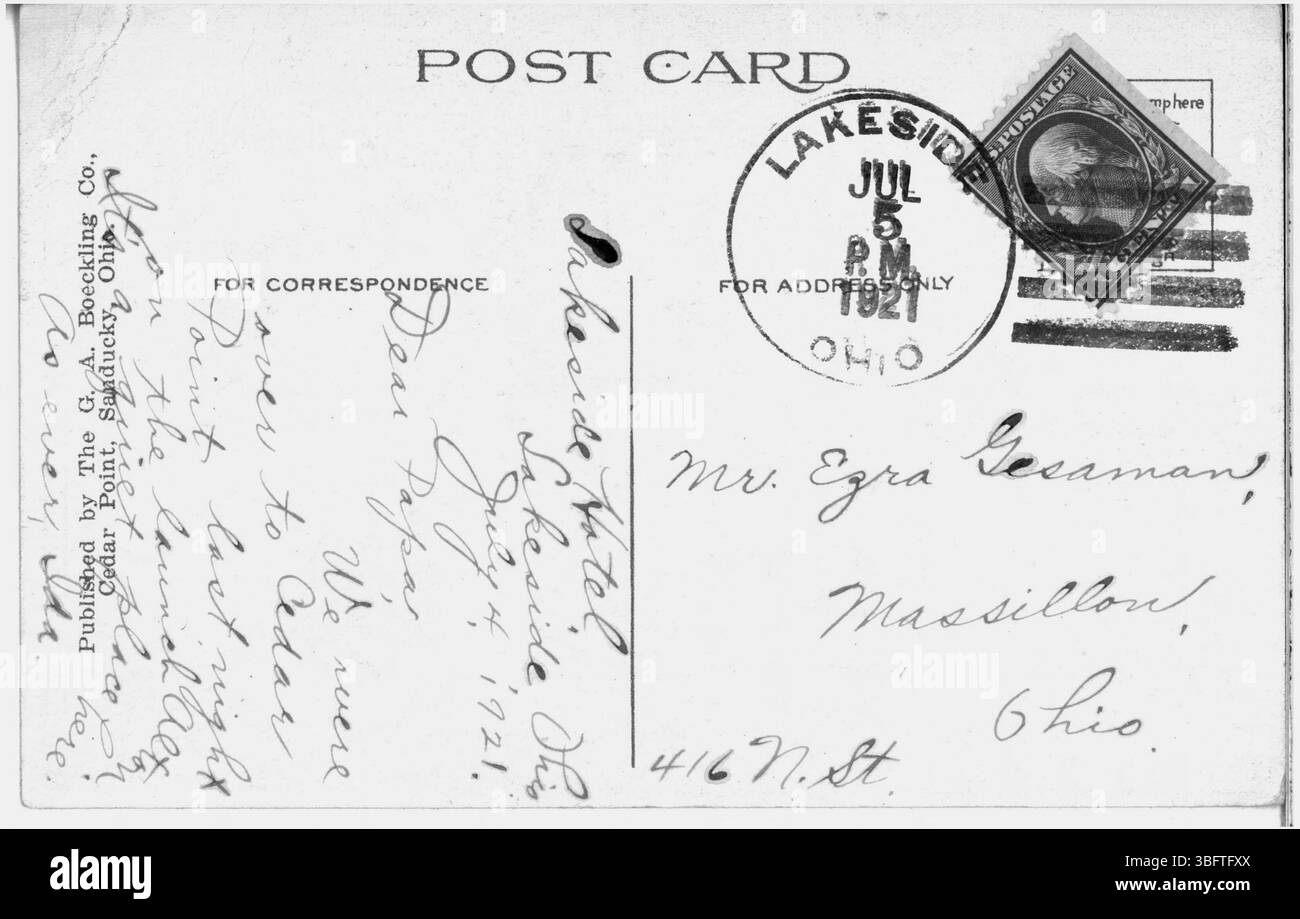 POST CARD
LAKESIDE
JUL
5
P.M.
1921
OHIO
POSTAGE
FOR CORRESPONDENCE
FOR ADDRESS ONLY
Lakeside Hotel,
Lakeside, Ohio
July 4, 1921.
Dear Papa,
We were
over to Cedar
Point last night
on the launch
It's a quiet place
here.
As ever, Ida.
Published by The G. A. Boeckling Co.,
Cedar Point, Sandusky, Ohio.
Mr. Ezra Gesaman,
Massillon,
Ohio.
416 N. St.
alamy
alamy
Image ID: 3BFTFXX
www.alamy.com